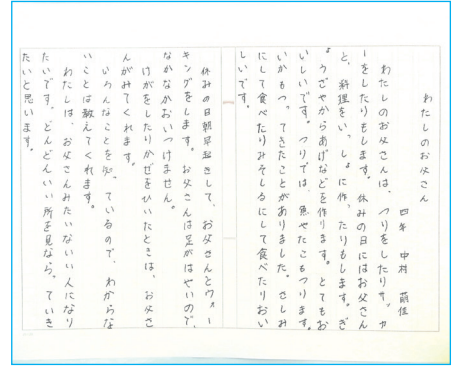 わたしのお父さん
四年　中村　萌佳
わたしのお父さんは、つりをしたりサッカ
ーをしたりもします。休みの日にはお父さん
と、料理をいっしょに作ったりもします。ぎ
ょうざやからあげなどを作ります。とてもお
いしいです。つりでは、魚やたこもつります。
いかもつってきたことがありました。さしみ
にして食べたりみそしるにして食べたりおい
しいです。
休みの日朝早起きして、お父さんとウォー
キングをします。お父さんは足がはやいので、
なかなかおいつけません。
けがをしたりかぜをひいたときは、お父さ
んがみてくれます。
いろんなことを知っているので、わからな
いことは教えてくれます。
わたしは、お父さんみたいないい人になり
たいです。どんどんいい所を見ならっていき
たいと思います。